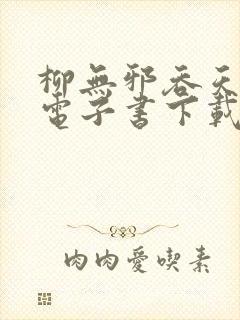 柳無邪吞天
電子書下載
肉肉愛喫素